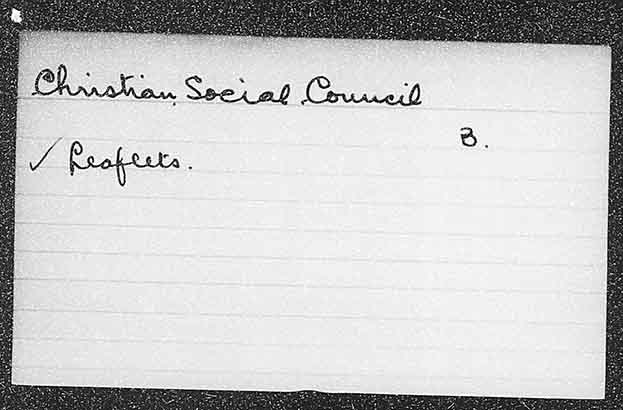 Christian Social Council
B.
✓ Leaflets.